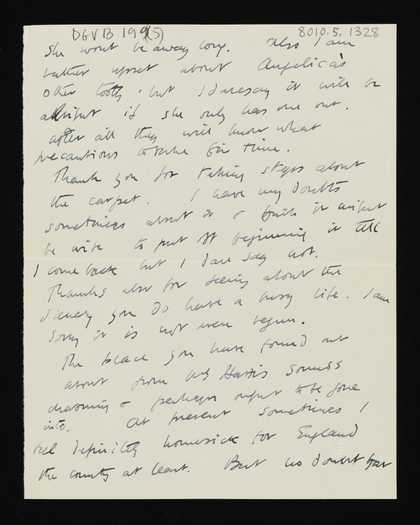 DGVB 19(5)
8010.5.1328
She wont be away long. Also I am
rather upset about Angelica's
other tooth, but I daresay it will be
allright if she only has one out.
after all they will know what
precautions to take this time.
Thank you for taking steps about
the carpet. I have my doubts
sometimes about it & think it might
be wise to put off beginning it till
I come back but I dare say not.
Thanks also for seeing about the
you do have a busy life. I am
sorry it is not even begun.
The place you have found out
about from Harris sounds
charming & perhaps ought to be gone
into. At present sometimes I
feel definitely homesick for England
the country at least. But no doubt